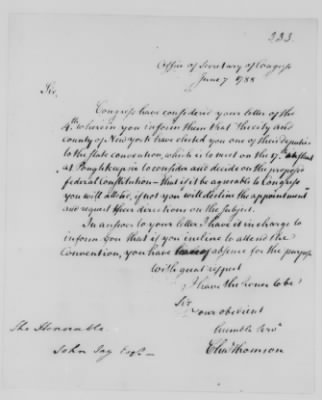 323.
Office of Secretary of Congress
June 7 1788
Sir,
Congress have considered your letter of the
4th. wherein you inform them that the city and
county of New york have elected you one of their deputies
to the state convention, which is to meet on the 17th. instant
at Poughkeepsie to consider and decide on the proposed
federal Constitution — that if it be agreeable to Congress
you will attend, if not you will decline the appointment
and request their directions on the subject.
In answer to your letter I have it in charge to
inform you that if you incline to attend the
Convention, you have leave of absence for the purpose
With great respect
I have the honor to be
Sir
your obedient
humble Servt
Chas Thomson
The Honorable
John Jay Esqr